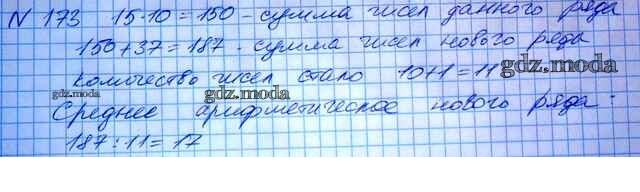 N 173 15·10=150 - сумма чисел данного ряда
150+37=187 - сумма чисел нового ряда
количество чисел стало 10+1=11
gdz.moda
gdz.moda gdz.moda gdz.moda
Среднее арифметическое нового ряда:
187:11=17